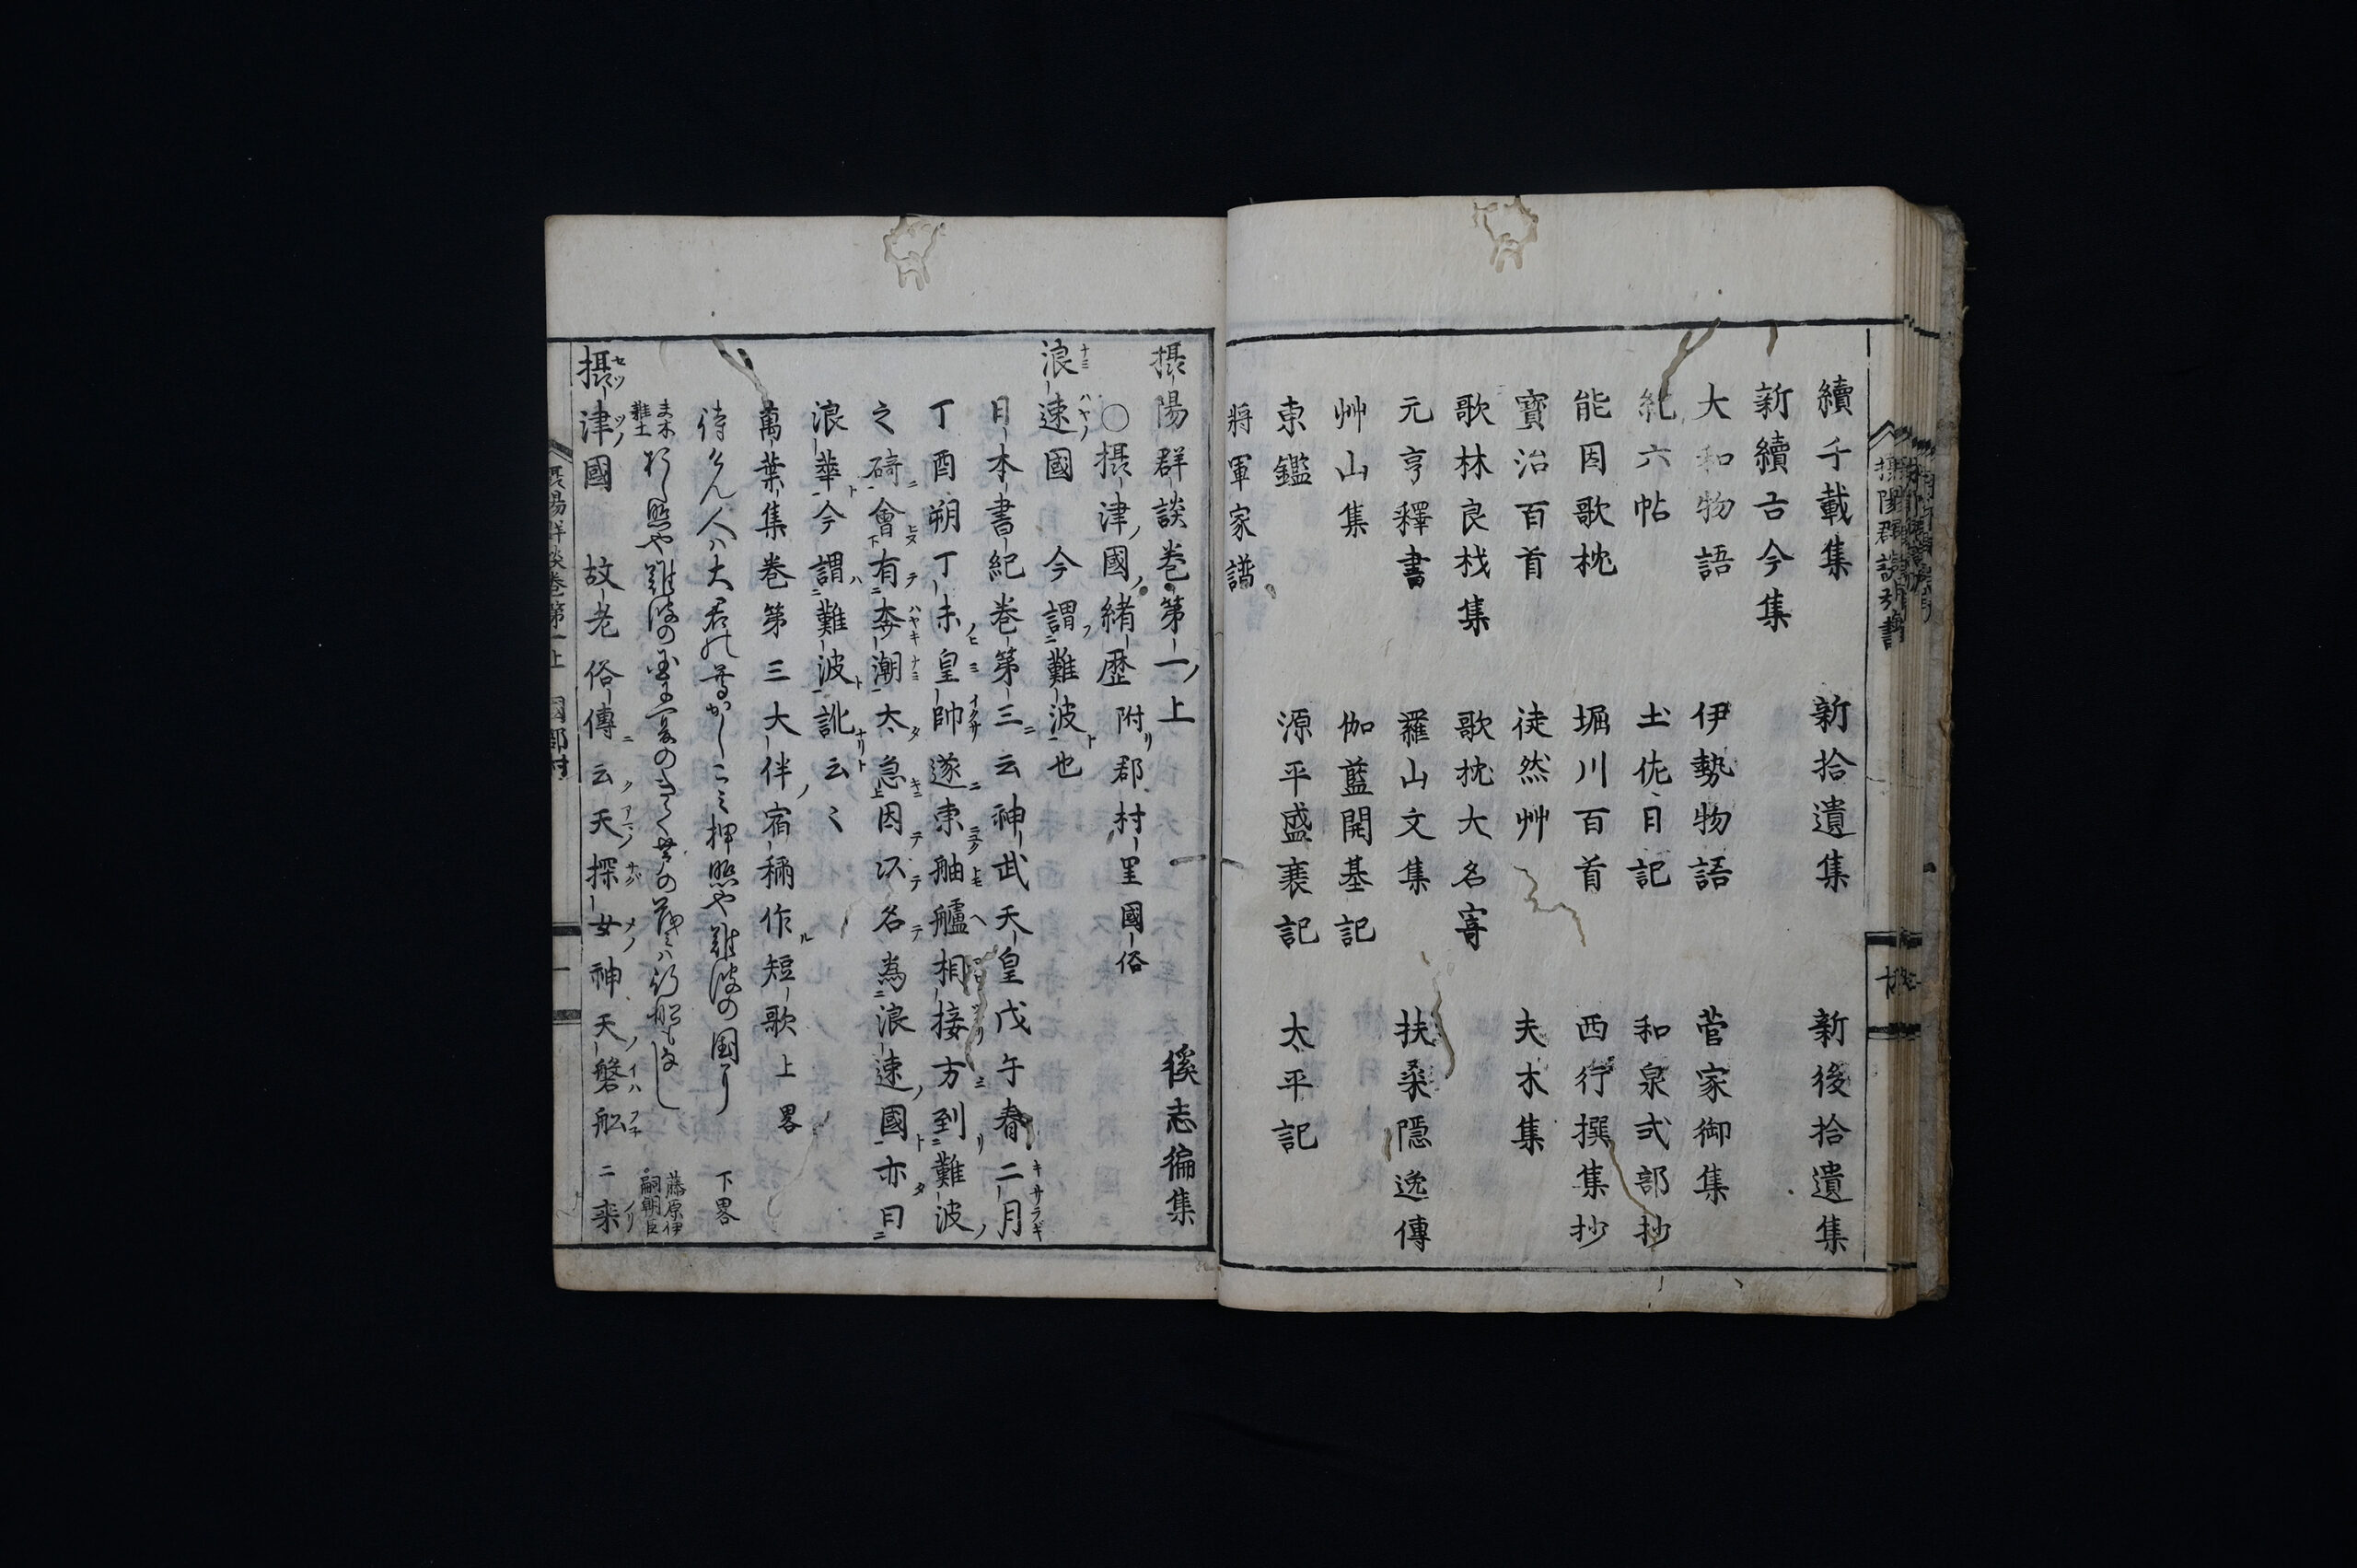 續千載集 新拾遺集 新後拾遺集
新續古今集
大和物語 伊勢物語 菅家御集
紀六帖 土佐日記 和泉式部抄
能因歌枕 堀川百首 西行撰集抄
寶治百首 徒然艸 夫木集
歌林良材集 歌枕大名寄
元亨釋書 羅山文集 扶桑隱逸傳
艸山集 伽藍開基記
東鑑 源平盛衰記 太平記
將軍家譜
攝陽群談卷第一ノ上 徯志編集
○攝津國ノ緒歷 附リ郡村里國俗
浪速國 今謂難波也
日本書紀卷第三云神武天皇戊午春二月
丁酉朔丁未皇師遂東舳艫相接方到難波
之碕會有奔潮太急因以名爲浪速國亦曰
浪華今謂難波訛云々
萬葉集卷第三大伴宿祢作短歌 上畧
待らん人ハ大君の
押照や難波の国に 下畧
藤原伊嗣朝臣
攝津國 故老俗傳云天探女神天磐舩ニ乘
攝陽群談卷第一上 國郡村 一